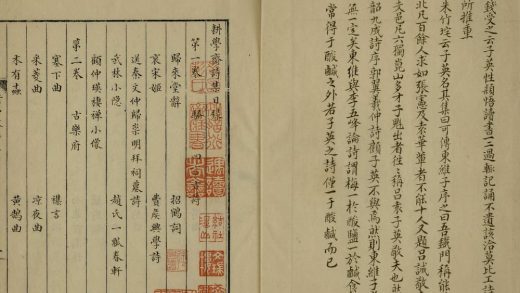 錢受之云子英性穎悟讀書一二過輒記誦不遺該洽莫比工詩
所推重
朱竹垞云子英名其集曰可傳東維子序之曰吾鐵門稱能
北凡百餘人求如張憲及袁華輩者不能十人又題呂誠敬
文邑凡六獨崑山多才子 出者往往稱呂袁子英敬夫也
韶九成詩序郭翼羲仲詩顧子英不與焉然則東維子
無一定矣東維與李五峰論詩謂梅一於酸鹽一於鹹食
常得于酸鹹之外若子英之詩僅一于酸鹹而已
耕學齋詩集目錄
第一卷 騷 詩
歸來堂辭 招鶴詞
哀宋姬 費 興學詩
送秦文仲歸崇明拜祠墓詩
武林小隱 趙氏一瓢春軒
顧仲瑛棲禪小像
第二卷 古樂府
塞下曲 襍言
采菱曲 夜曲
未有 黃鵠曲